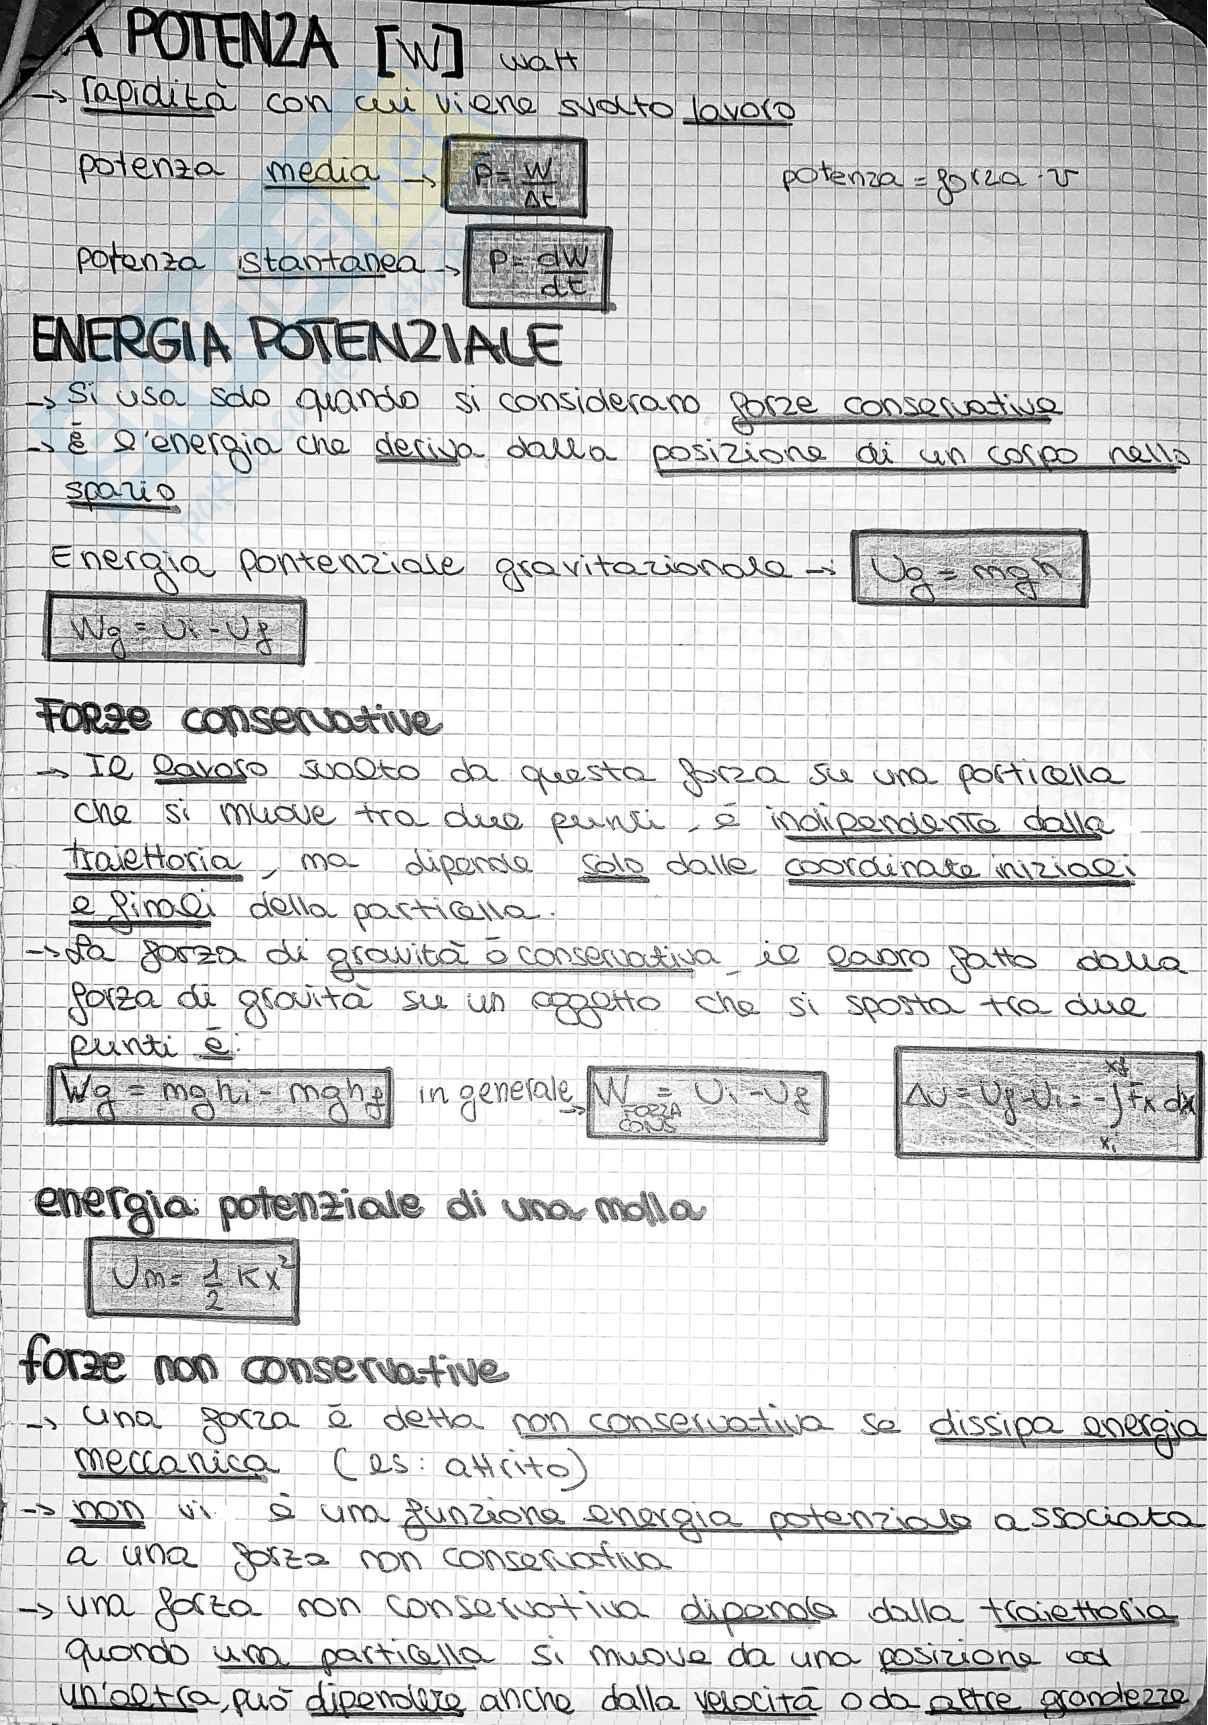 A POTENZA [W] watt
→ rapidità con cui viene svolto lavoro
potenza media → P̄ = W/Δt potenza = forza · v
potenza istantanea → P = dW/dt
ENERGIA POTENZIALE
→ Si usa solo quando si considerano forze conservative
→ è l'energia che deriva dalla posizione di un corpo nello
spazio
Energia pontenziale gravitazionale → Ug = mgh
Wg = Ui - Uf
FORZE conservative
→ Il lavoro svolto da questa forza su una particella
che si muove tra due punti, è indipendente dalla
traiettoria, ma dipende solo dalle coordinate iniziali
e finali della particella.
→ La forza di gravità è conservativa, il lavoro fatto dalla
forza di gravità su un oggetto che si sposta tra due
punti è:
Wg = mghi - mghf in generale → W FORZA CONS = Ui - Uf ΔU = Uf - Ui = -∫ xi xf Fx dx
energia potenziale di una molla
Um = 1/2 Kx²
forze non conservative
→ una forza è detta non conservativa se dissipa energia
meccanica (es: attrito)
→ non vi è una funzione energia potenziale associata
a una forza non conservativa
→ una forza non conservativa dipende dalla traiettoria
quando una particella si muove da una posizione ad
un'altra, può dipendere anche dalla velocità o da altre grandezze